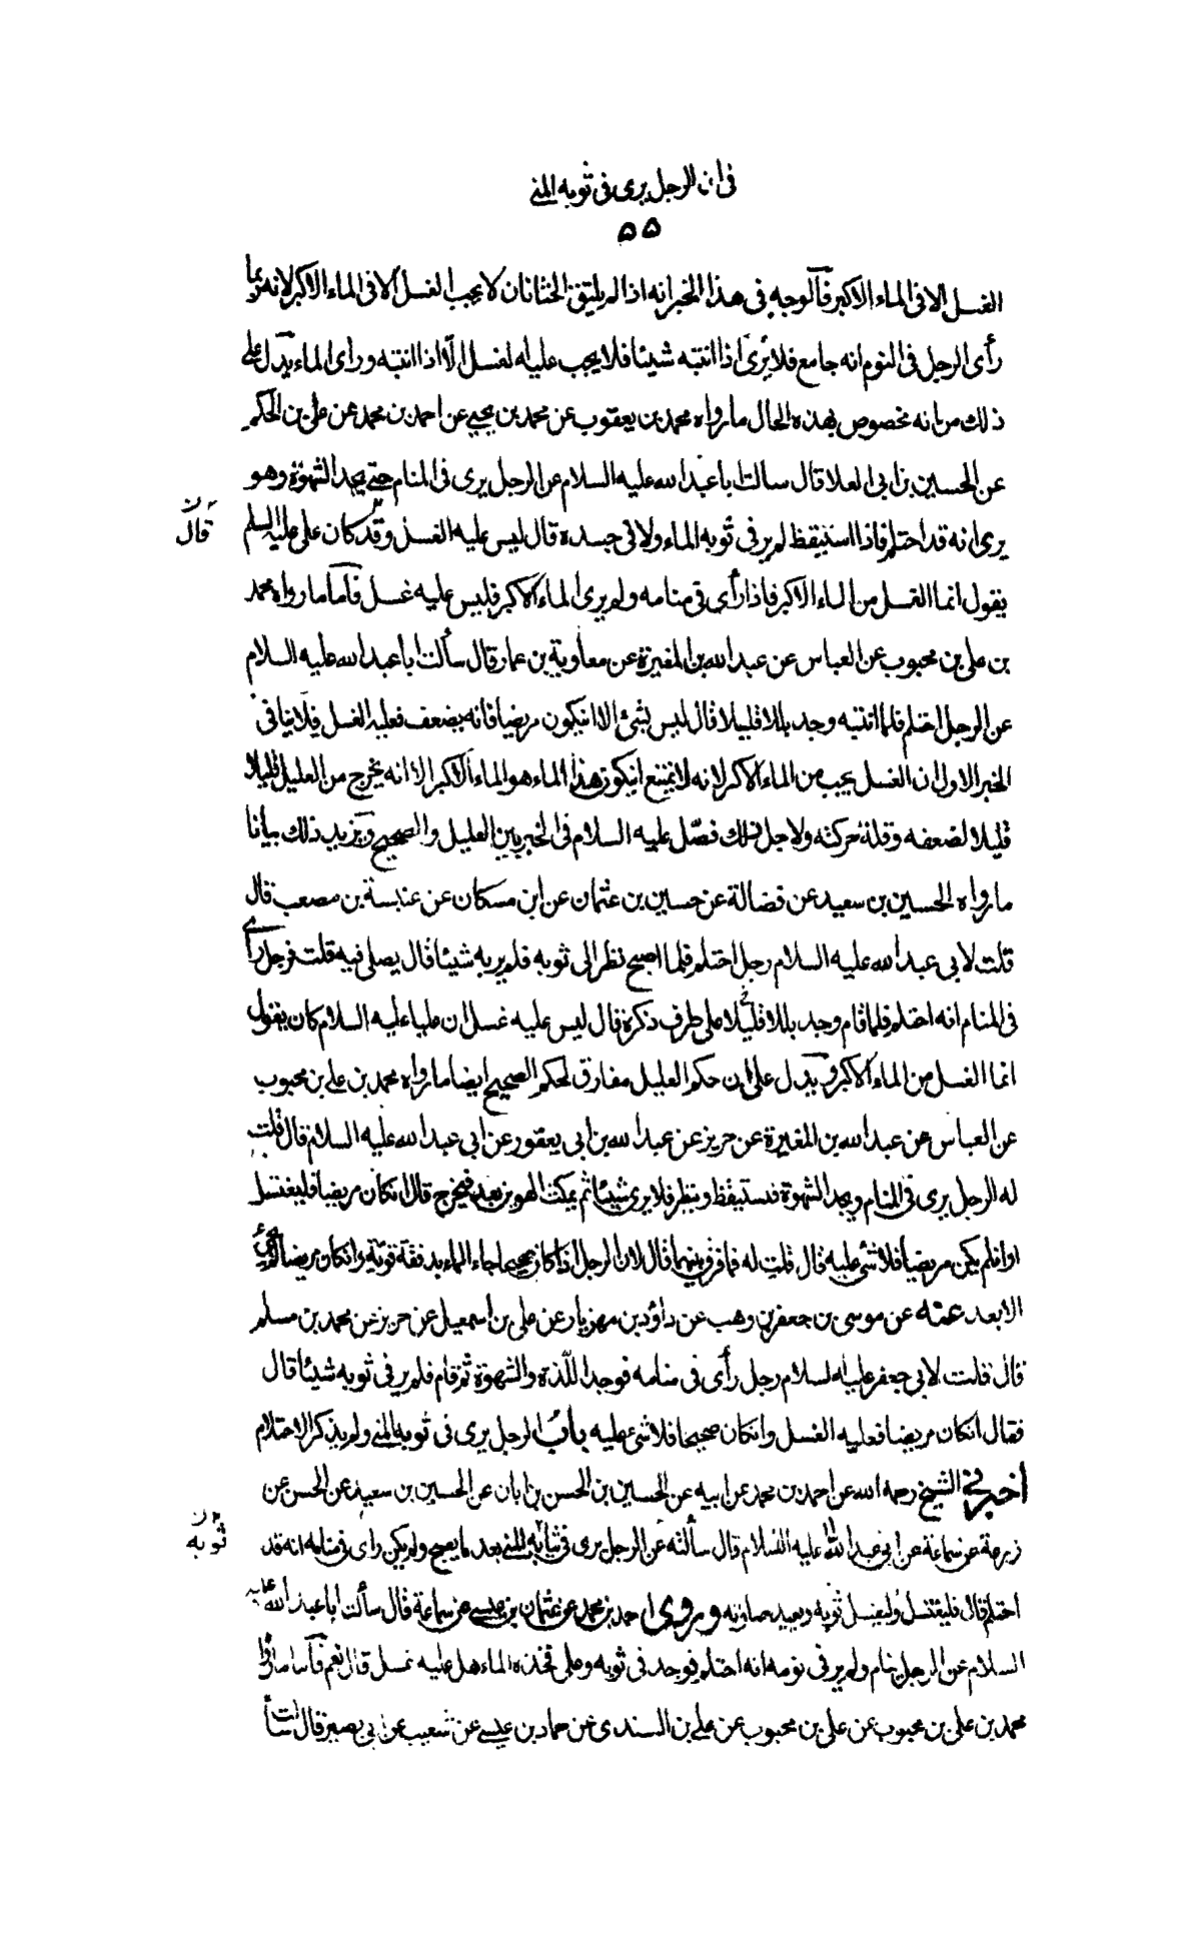 فى ان الرجل يرى فى ثوبه المنى
۵۵
الغسل الا فى الماء الاكبر فالوجه فى هذا الخبر انه اذا لم يلتق الختانان لا يجب الغسل الا فى الماء الاكبر لانه ربما
رأى الرجل فى النوم انه جامع فلا يرى اذا انتبه شيئا فلا يجب عليه الغسل الا اذا انتبه وراى الماء يدل على
ذلك من انه مخصوص بهذه الحال ما رواه محمد بن يعقوب عن محمد بن يحيى عن احمد بن محمد عن على بن الحكم
عن الحسين بن ابى العلا قال سالت ابا عبد الله عليه السلام عن الرجل يرى فى المنام حتى يجد الشهوة وهو
يرى انه قد احتلم فاذا استيقظ لم ير فى ثوبه الماء ولا فى جسده قال ليس عليه الغسل وقد كان على عليه السلم
قال
يقول انما الغسل من الماء الاكبر فاذا رأى فى منامه ولم يرى الماء الاكبر فليس عليه غسل فاما ما رواه محمد
بن على بن محبوب عن العباس عن عبد الله بن المغيرة عن معاوية بن عمار قال سألت ابا عبد الله عليه السلام
عن الرجل احتلم فلما انتبه وجد بللا قليلا قال ليس بشئ الا ان يكون مريضا فانه يضعف فعليه الغسل فلا ينافى
الخبر الاول ان الغسل يجب من الماء الاكبر لانه لا يمتنع ان يكون هذا الماء هو الماء الاكبر الا انه يخرج من العليل قليلا
قليلا لضعفه وقلة حركته ولاجل ذلك فصّل عليه السلام فى الخبر بين العليل والصحيح ويزيد ذلك بيانا
ما رواه الحسين بن سعيد عن فضالة عن حسين بن عثمان عن ابن مسكان عن عنبسة بن مصعب قال
قلت لابى عبد الله عليه السلام رجل احتلم فلما اصبح نظر الى ثوبه فلم ير به شيئا قال يصلى فيه قلت فرجل رأى
فى المنام انه احتلم فلما قام وجد بللا قليلا على طرف ذكره قال ليس عليه غسل ان عليا عليه السلام كان يقول
انما الغسل من الماء الاكبر ويدل على ان حكم العليل مفارق لحكم الصحيح ايضا ما رواه محمد بن على بن محبوب
عن العباس عن عبد الله بن المغيرة عن حريز عن عبد الله بن ابى يعفور عن ابى عبد الله عليه السلام قال قلت
له الرجل يرى فى المنام ويجد الشهوة فيستيقظ وينظر فلا يرى شيئا ثم يمكث الهوين بعد فيخرج قال ان كان مريضا فليغتسل
وان لم يكن مريضا فلا شئ عليه قال قلت له فما فرق بينهما قال لان الرجل اذا كان صحيحا جاء الماء بدفقة قوية وان كان مريضا لم يجئ
الا بعد عنه عن موسى بن جعفر بن وهب عن داؤد بن مهزيار عن على بن اسمعيل عن حريز عن محمد بن مسلم
قال قلت لابى جعفر عليه السلام رجل رأى فى منامه فوجد اللّذة والشهوة ثم قام فلم ير فى ثوبه شيئا قال
فقال ان كان مريضا فعليه الغسل وان كان صحيحا فلا شئ عليه باب الرجل يرى فى ثوبه المنى ولم يذكر الاحتلام
اخبرنى الشيخ رحمه الله عن احمد بن محمد عن ابيه عن الحسين بن الحسن بن ابان عن الحسين بن سعيد عن الحسن عن
زرعة عن سماعة عن ابى عبد الله عليه السلام قال سألته عن الرجل يرى فى ثيابه المنى بعد ما يصبح ولم يكن راى فى منامه انه قد
ثوبه
احتلم قال فليغتسل وليغسل ثوبه ويعيد صلوته وروى احمد بن محمد عن عثمان بن عيسى عن سماعة قال سألت ابا عبد الله عليه
السلام عن الرجل ينام ولم ير فى نومه انه احتلم فيوجد فى ثوبه وعلى فخذه الماء هل عليه غسل قال نعم فاما ما رواه
محمد بن على بن محبوب عن على بن محبوب عن على بن السندى عن حماد بن عيسى عن شعيب عن ابى بصير قال سألت